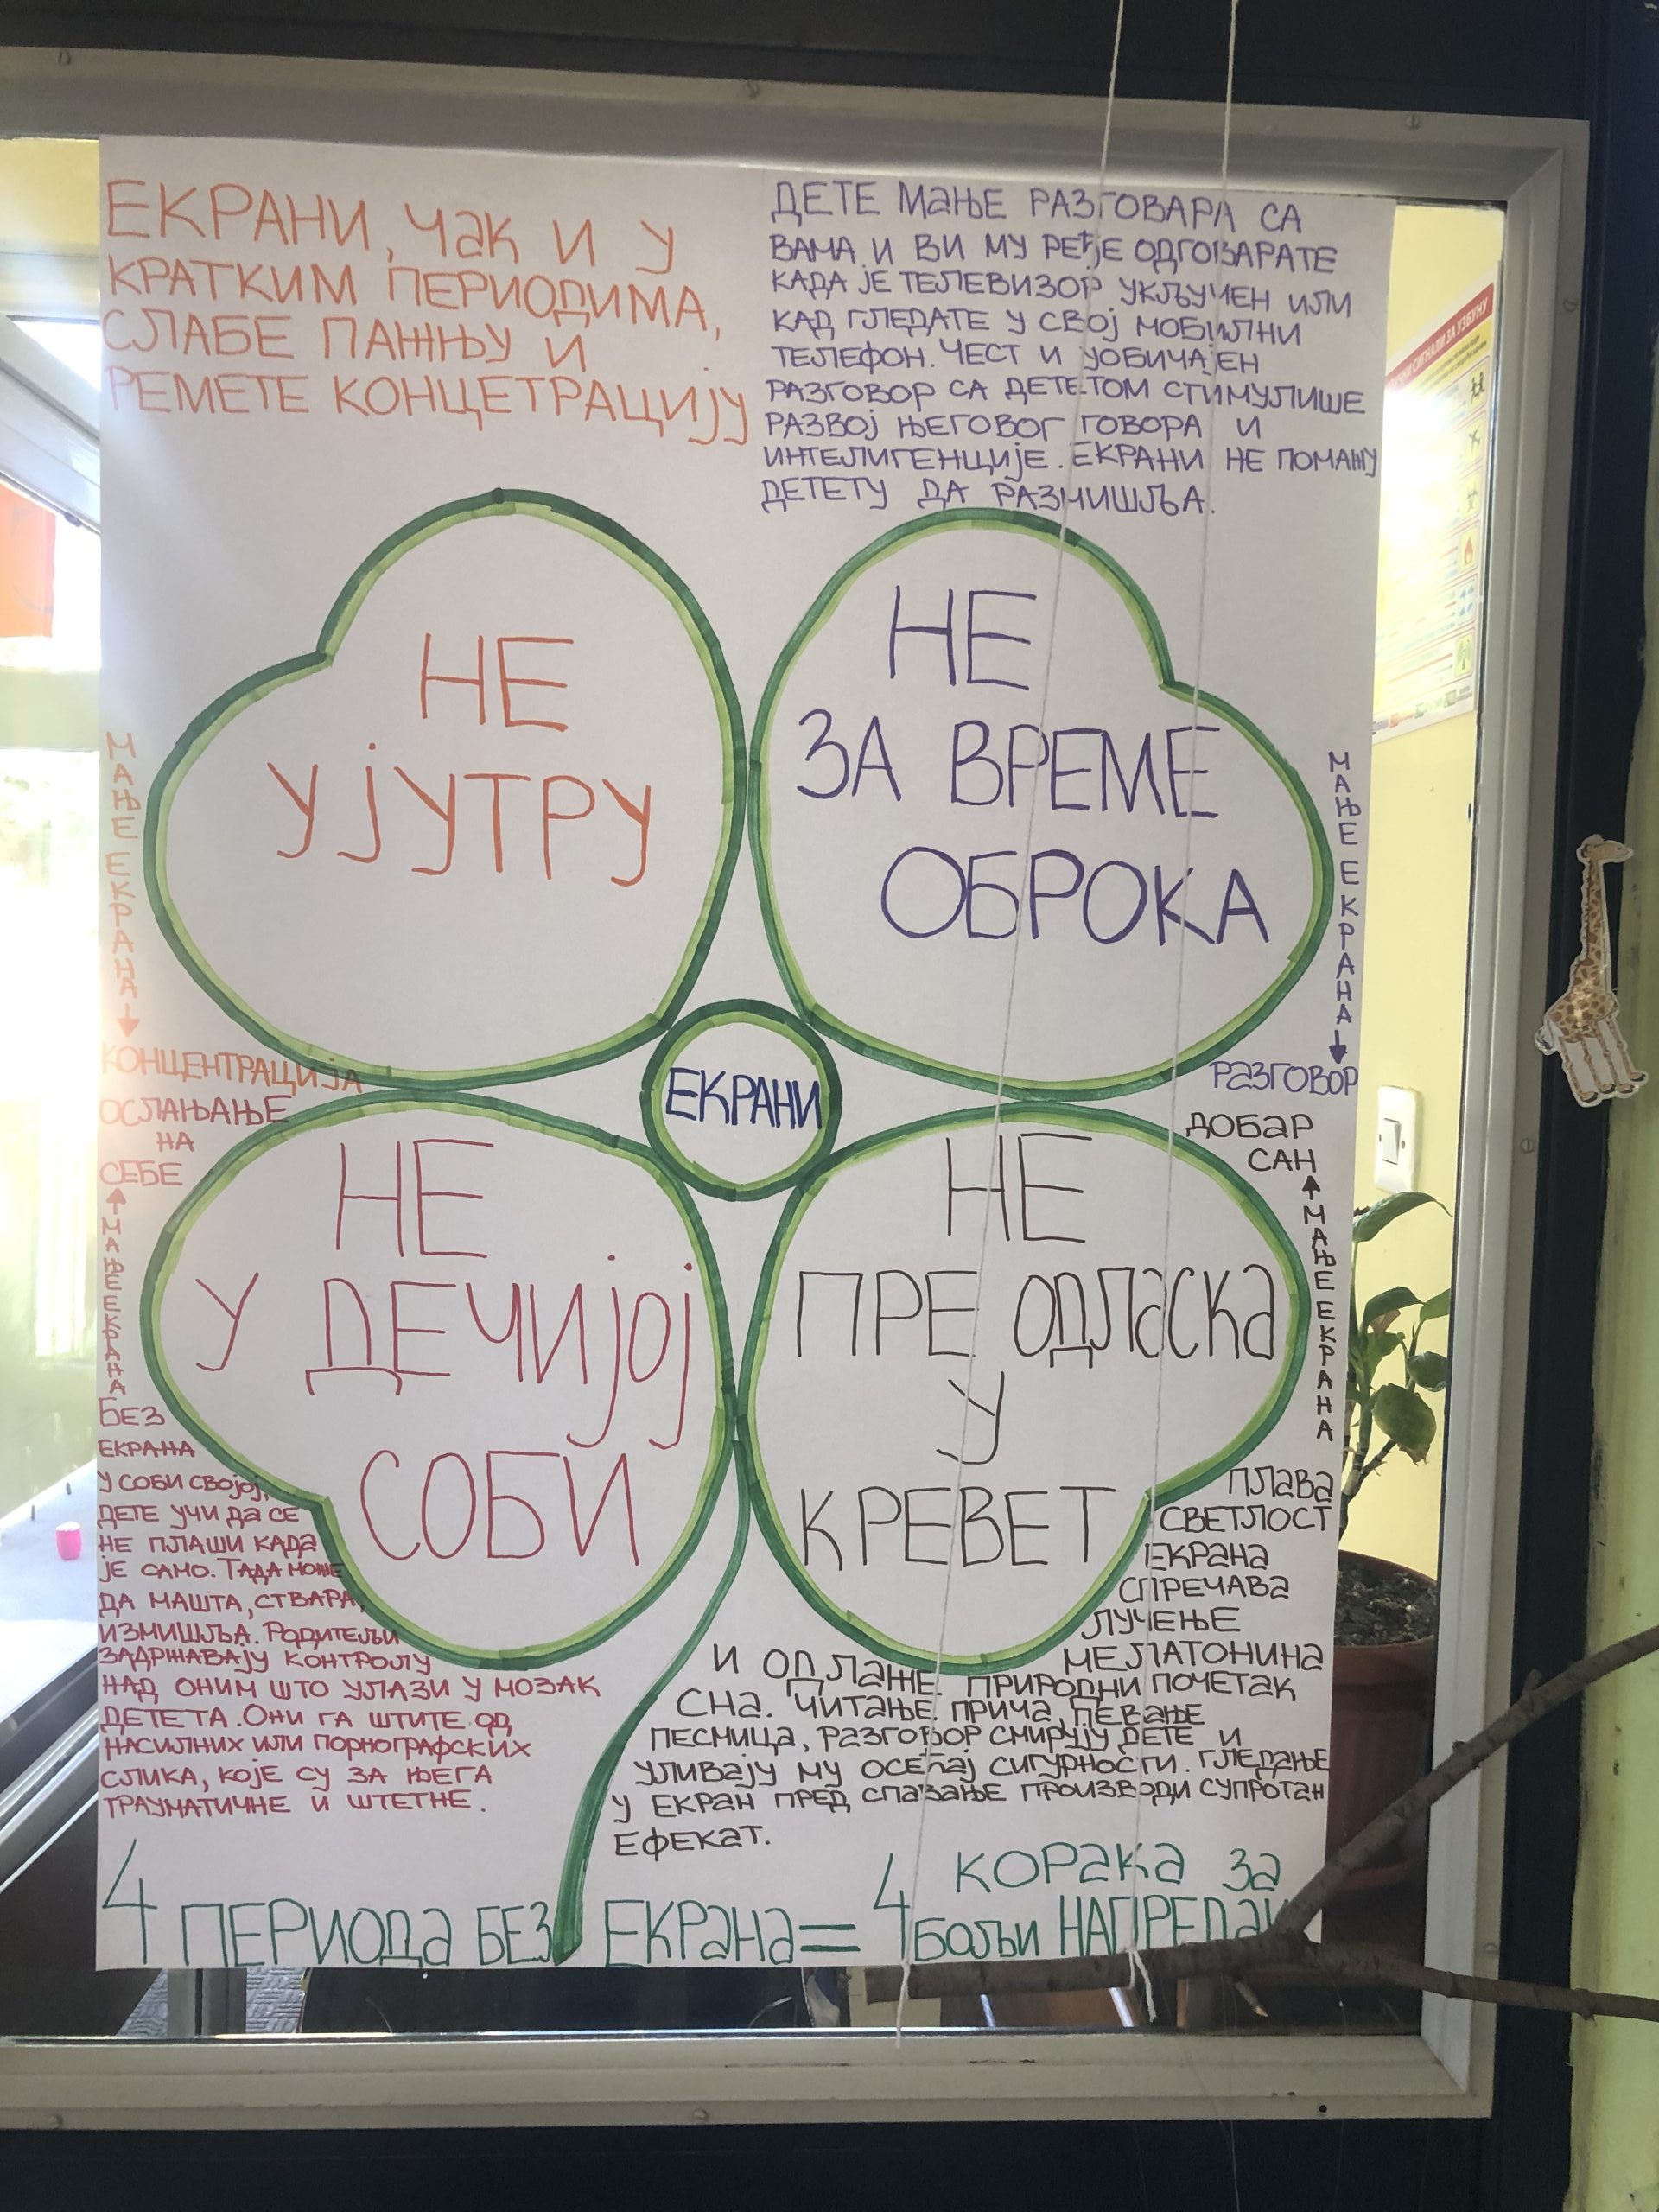 ЕКРАНИ, ЧАК И У
КРАТКИМ ПЕРИОДИМА,
СЛАБЕ ПАЖЊУ И
РЕМЕТЕ КОНЦЕТРАЦИЈУ
ДЕТЕ МАЊЕ РАЗГОВАРА СА
ВАМА И ВИ МУ РЕЂЕ ОДГОВАРАТЕ
КАДА ЈЕ ТЕЛЕВИЗОР УКЉУЧЕН ИЛИ
КАД ГЛЕДАТЕ У СВОЈ МОБИЛНИ
ТЕЛЕФОН. ЧЕСТ И УОБИЧАЈЕН
РАЗГОВОР СА ДЕТЕТОМ СТИМУЛИШЕ
РАЗВОЈ ЊЕГОВОГ ГОВОРА И
ИНТЕЛИГЕНЦИЈЕ. ЕКРАНИ НЕ ПОМАЖУ
ДЕТЕТУ ДА РАЗМИШЉА.
НЕ
УЈУТРУ
НЕ
ЗА ВРЕМЕ
ОБРОКА
МАЊЕ ЕКРАНА
КОНЦЕНТРАЦИЈА
МАЊЕ ЕКРАНА
РАЗГОВОР
ЕКРАНИ
ОСЛАЊАЊЕ
НА
СЕБЕ
МАЊЕ ЕКРАНА
ДОБАР
САН
МАЊЕ ЕКРАНА
НЕ
У ДЕЧИЈОЈ
СОБИ
НЕ
ПРЕ ОДЛАСКА
У
КРЕВЕТ
БЕЗ
ЕКРАНА
У СОБИ СВОЈОЈ,
ДЕТЕ УЧИ ДА СЕ
НЕ ПЛАШИ КАДА
ЈЕ САМО. ТАДА МОЖЕ
ДА МАШТА, СТВАРА,
ИЗМИШЉА. РОДИТЕЉИ
ЗАДРЖАВАЈУ КОНТРОЛУ
НАД ОНИМ ШТО УЛАЗИ У МОЗАК
ДЕТЕТА. ОНИ ГА ШТИТЕ ОД
НАСИЛНИХ ИЛИ ПОРНОГРАФСКИХ
СЛИКА, КОЈЕ СУ ЗА ЊЕГА
ТРАУМАТИЧНЕ И ШТЕТНЕ.
ПЛАВА
СВЕТЛОСТ
ЕКРАНА
СПРЕЧАВА
ЛУЧЕЊЕ
МЕЛАТОНИНА
И ОДЛАЖЕ ПРИРОДНИ ПОЧЕТАК
СНА. ЧИТАЊЕ ПРИЧА, ПЕВАЊЕ
ПЕСМИЦА, РАЗГОВОР СМИРУЈУ ДЕТЕ И
УЛИВАЈУ МУ ОСЕЋАЈ СИГУРНОСТИ. ГЛЕДАЊЕ
У ЕКРАН ПРЕД СПАВАЊЕ ПРОИЗВОДИ СУПРОТАН
ЕФЕКАТ.
4 ПЕРИОДА БЕЗ ЕКРАНА = 4 КОРАКА ЗА
БОЉИ НАПРЕДАК